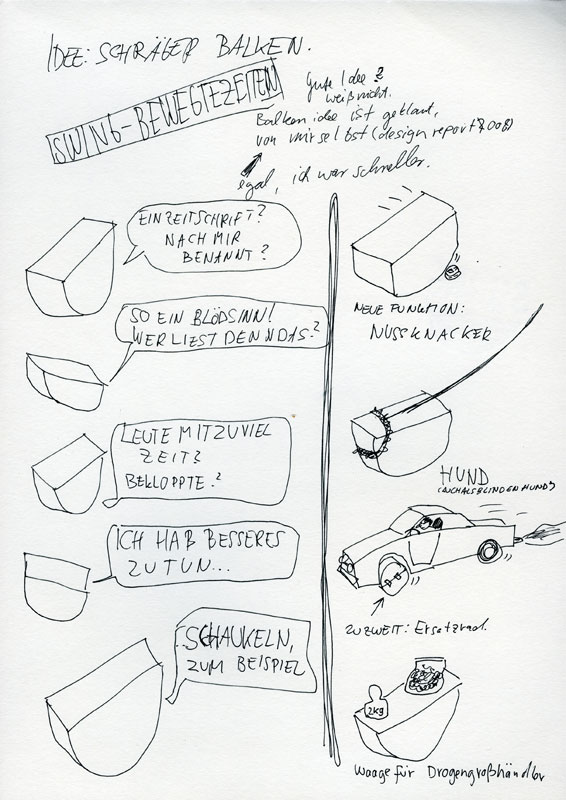 IDEE: SCHRÄGER BALKEN.
SWING-BEWEGTEZEITEN
Gute Idee?
weißnicht.
Balken idee ist geklaut,
von mir selbst (design report 7008)
egal, ich war schneller.
EINZEITSCHRIFT?
NACH MIR
BENANNT?
SO EIN BLÖDSINN!
WER LIEST DENN DAS?
LEUTE MIT ZUVIEL
ZEIT?
BEKLOPPTE?
ICH HAB BESSERES
ZU TUN...
SCHAUKELN,
ZUM BEISPIEL
NEUE FUNKTION:
NUSSKNACKER
HUND
(AUCH ALS BLINDENHUND)
ZU ZWEIT: Ersatzrad.
2KG
Waage für Drogengroßhändler